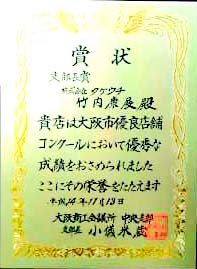 賞状
支部長賞
株式会社 タケウチ
竹内康展 殿
貴店は大阪市優良店舗
コンクールにおいて優秀な
成績をおさめられました
ここにその栄誉をたたえます
平成14年11月13日
大阪商工会議所 中央支部
支部長 小儀